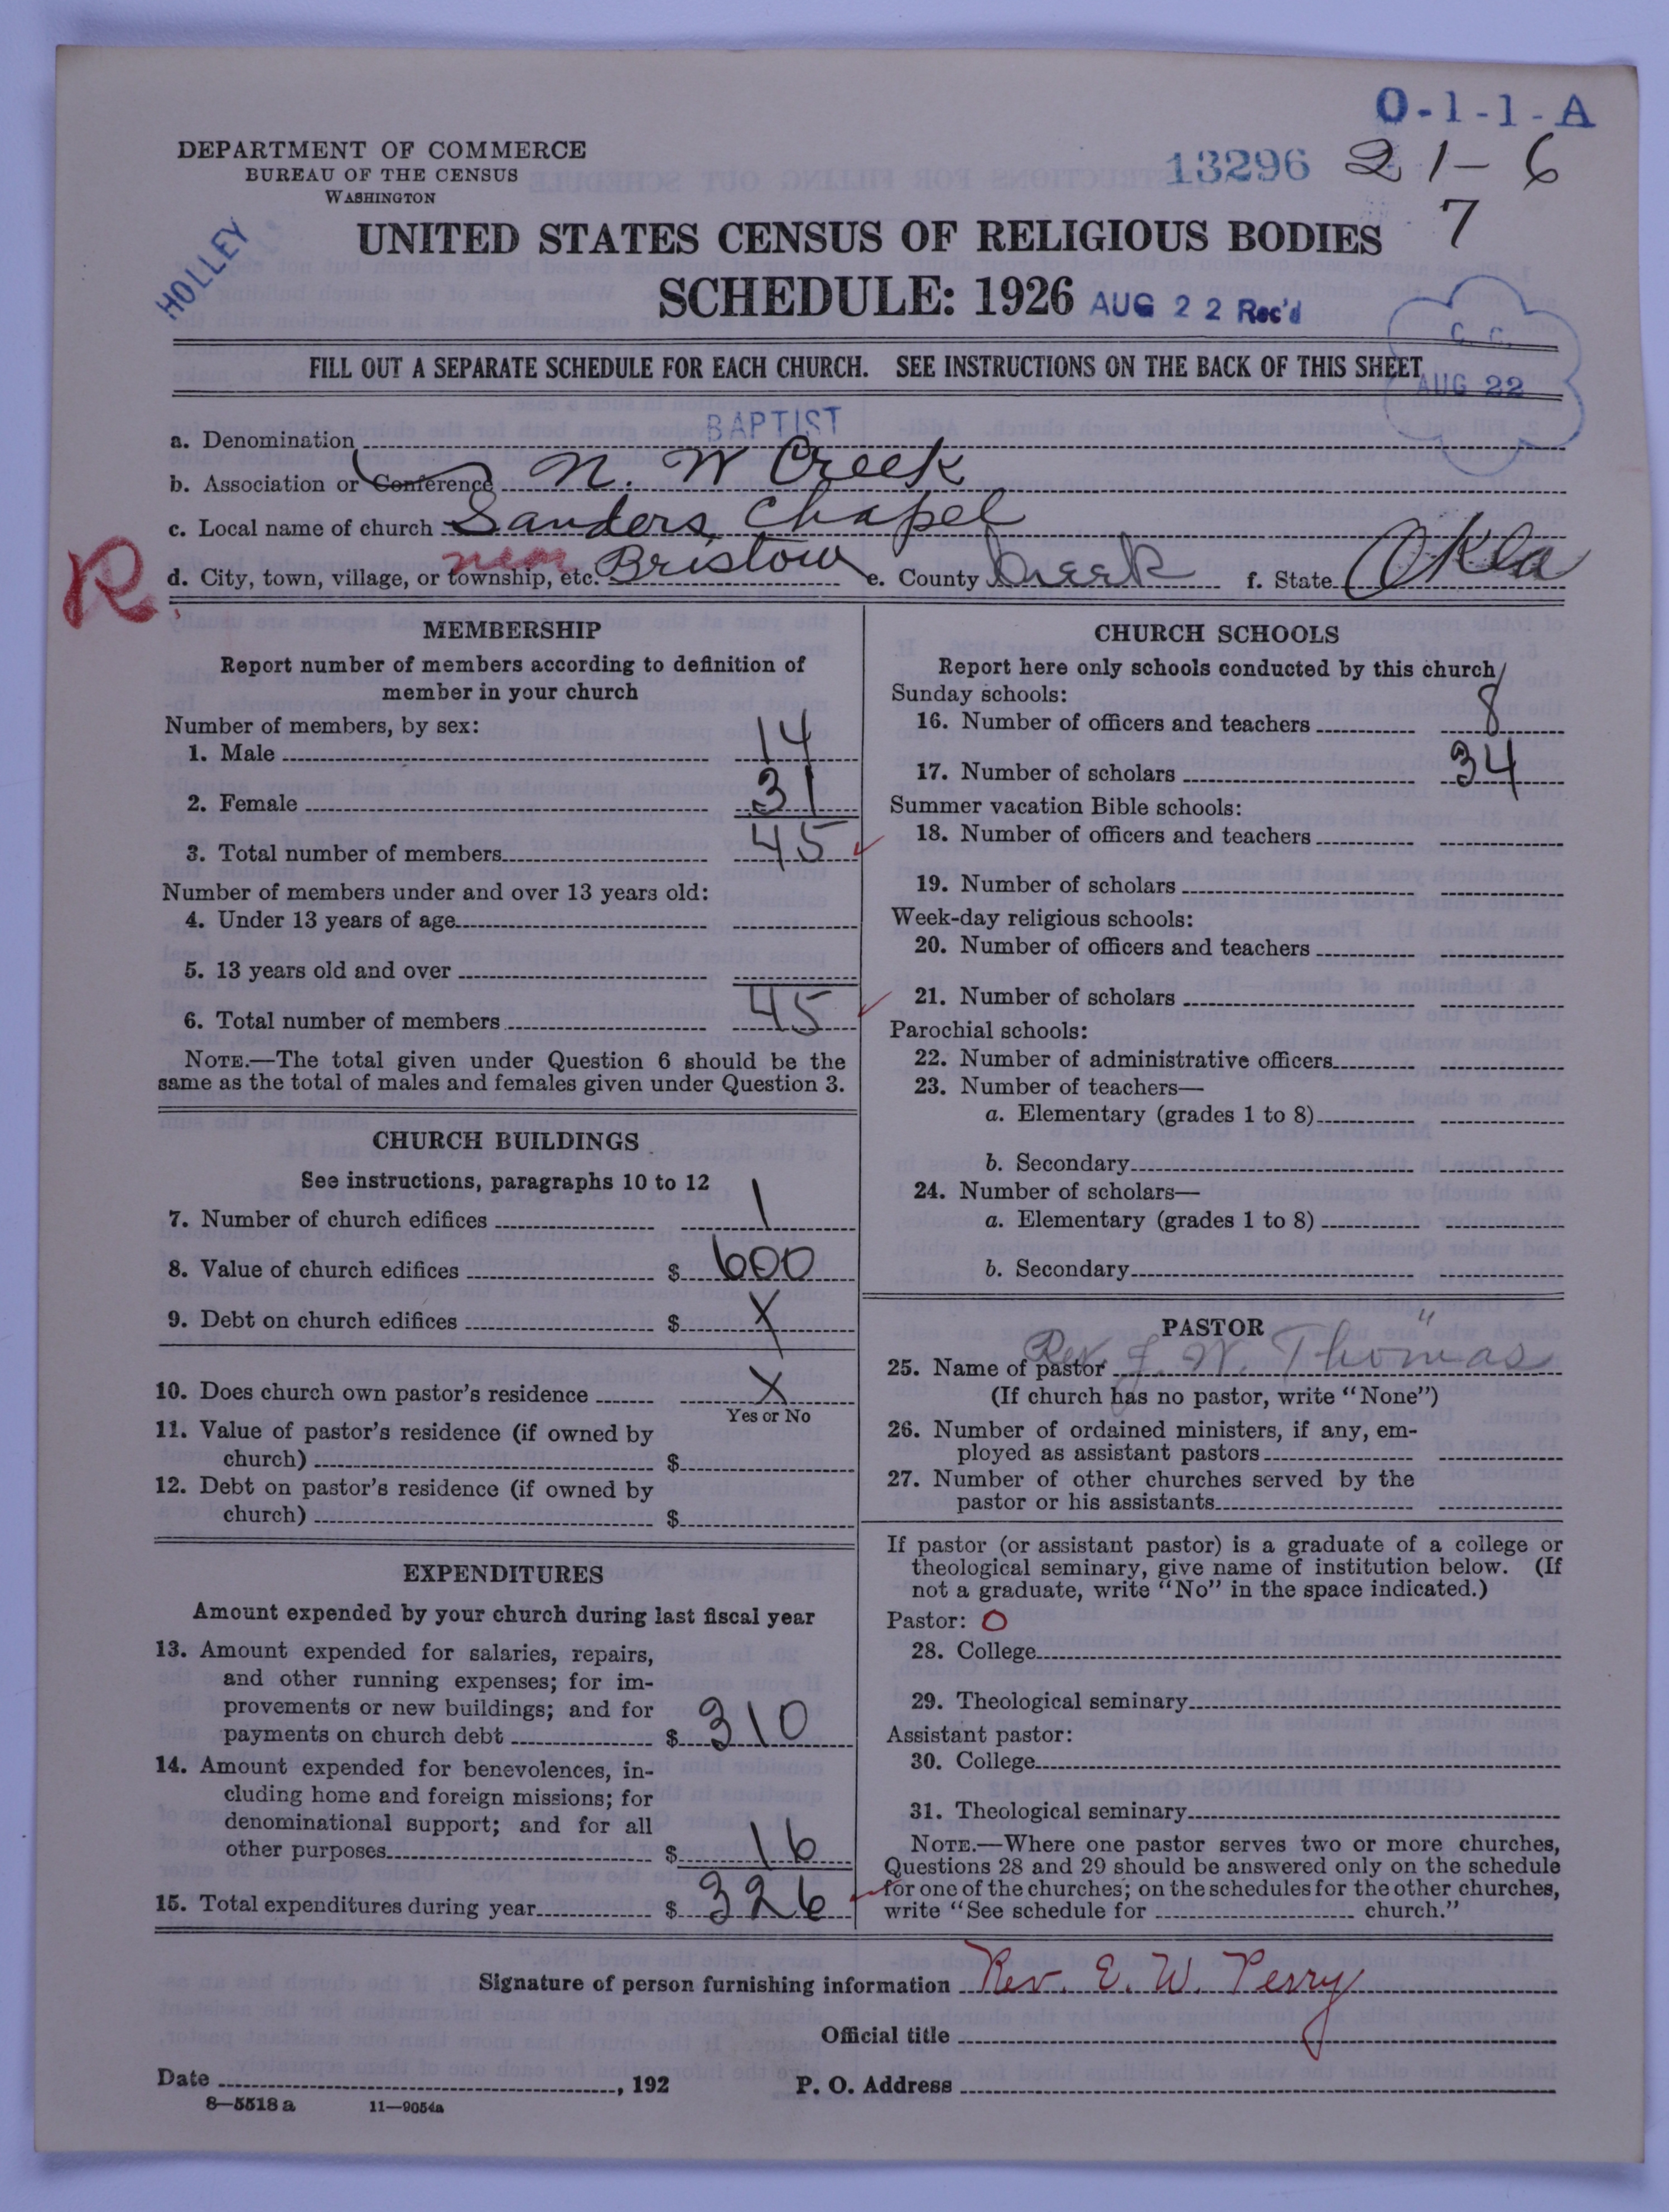 O-1-1-A
DEPARTMENT OF COMMERCE
BUREAU OF THE CENSUS
WASHINGTON
13296 21-6
7
HOLLEY
UNITED STATES CENSUS OF RELIGIOUS BODIES
SCHEDULE: 1926 AUG 22 Rec'd
C. C.
AUG 22
FILL OUT A SEPARATE SCHEDULE FOR EACH CHURCH. SEE INSTRUCTIONS ON THE BACK OF THIS SHEET
a. Denomination BAPTIST
b. Association or Conference N. W Creek
c. Local name of church Sanders Chapel
R
d. City, town, village, or township, etc. near Bristow e. County Creek f. State Okla
MEMBERSHIP
Report number of members according to definition of
member in your church
Number of members, by sex:
1. Male 14
2. Female 31
3. Total number of members 45
Number of members under and over 13 years old:
4. Under 13 years of age
5. 13 years old and over
6. Total number of members 45
NOTE.—The total given under Question 6 should be the
same as the total of males and females given under Question 3.
CHURCH BUILDINGS
See instructions, paragraphs 10 to 12
7. Number of church edifices 1
8. Value of church edifices $ 600
9. Debt on church edifices $ X
10. Does church own pastor's residence X
Yes or No
11. Value of pastor's residence (if owned by
church) $
12. Debt on pastor's residence (if owned by
church) $
EXPENDITURES
Amount expended by your church during last fiscal year
13. Amount expended for salaries, repairs,
and other running expenses; for im-
provements or new buildings; and for
payments on church debt $ 310
14. Amount expended for benevolences, in-
cluding home and foreign missions; for
denominational support; and for all
other purposes $ 16
15. Total expenditures during year $ 326
CHURCH SCHOOLS
Report here only schools conducted by this church
Sunday schools:
16. Number of officers and teachers 8
17. Number of scholars 34
Summer vacation Bible schools:
18. Number of officers and teachers
19. Number of scholars
Week-day religious schools:
20. Number of officers and teachers
21. Number of scholars
Parochial schools:
22. Number of administrative officers
23. Number of teachers—
a. Elementary (grades 1 to 8)
b. Secondary
24. Number of scholars—
a. Elementary (grades 1 to 8)
b. Secondary
PASTOR
25. Name of pastor Rev J. W. Thomas
(If church has no pastor, write "None")
26. Number of ordained ministers, if any, em-
ployed as assistant pastors
27. Number of other churches served by the
pastor or his assistants
If pastor (or assistant pastor) is a graduate of a college or
theological seminary, give name of institution below. (If
not a graduate, write "No" in the space indicated.)
Pastor: O
28. College
29. Theological seminary
Assistant pastor:
30. College
31. Theological seminary
NOTE.—Where one pastor serves two or more churches,
Questions 28 and 29 should be answered only on the schedule
for one of the churches; on the schedules for the other churches,
write "See schedule for church."
Signature of person furnishing information Rev. E. W. Perry
Official title
Date , 192 P. O. Address
8—5518 a 11—9054a